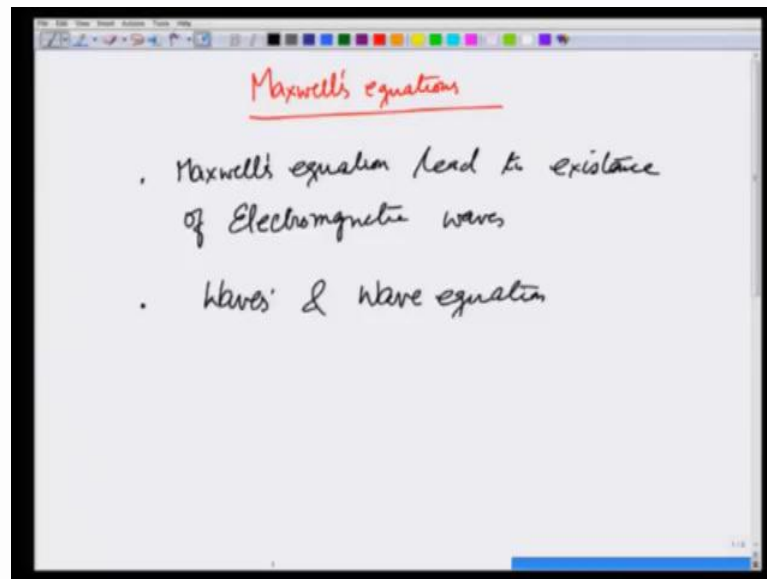 File Edit View Insert Actions Tools Help
Maxwell's equations
. Maxwell's equation lead to existance
of Electromgnetic waves
. Waves & Wave equation
1/2